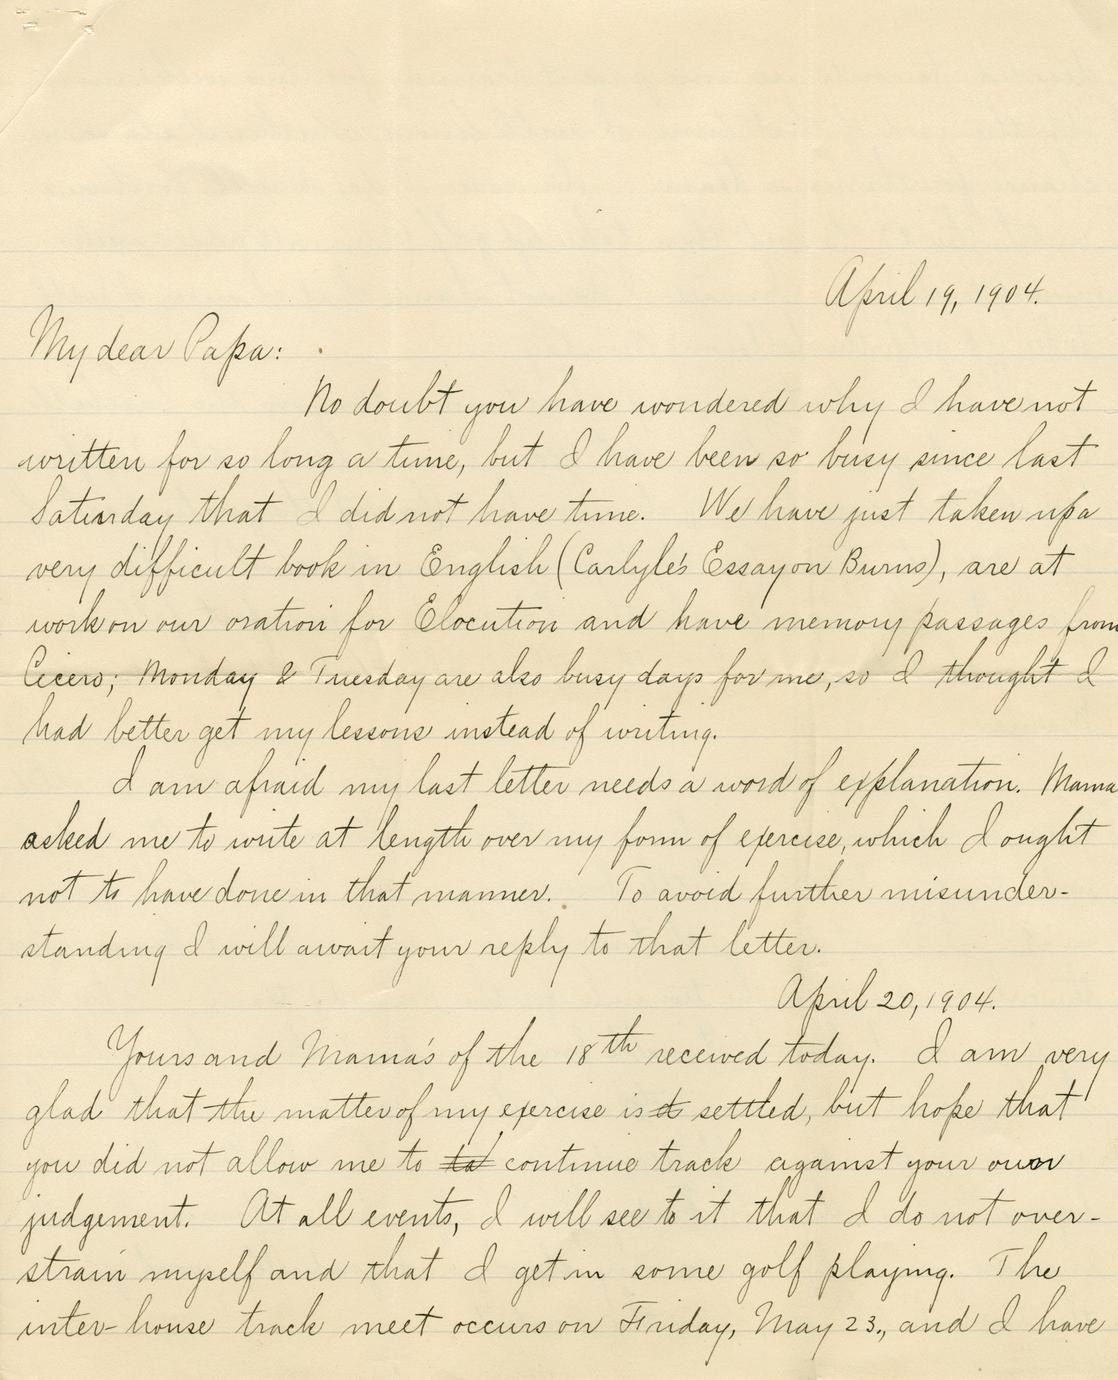 April 19, 1904.
My dear Papa:
No doubt you have wondered why I have not
written for so long a time, but I have been so busy since last
Saturday that I did not have time. We have just taken up a
very difficult book in English (Carlyle's Essay on Burns), are at
work on our oration for Elocution and have memory passages from
Cicero; Monday & Tuesday are also busy days for me, so I thought I
had better get my lessons instead of writing.
I am afraid my last letter needs a word of explanation. Mama
asked me to write at length over my form of exercise, which I ought
not to have done in that manner. To avoid further misunder-
standing I will await your reply to that letter.
April 20, 1904.
Yours and Mama's of the 18th received today. I am very
glad that the matter of my exercise is settled, but hope that
you did not allow me to continue track against your own
judgement. At all events, I will see to it that I do not over-
strain myself and that I get in some golf playing. The
inter-house track meet occurs on Friday, May 23., and I have